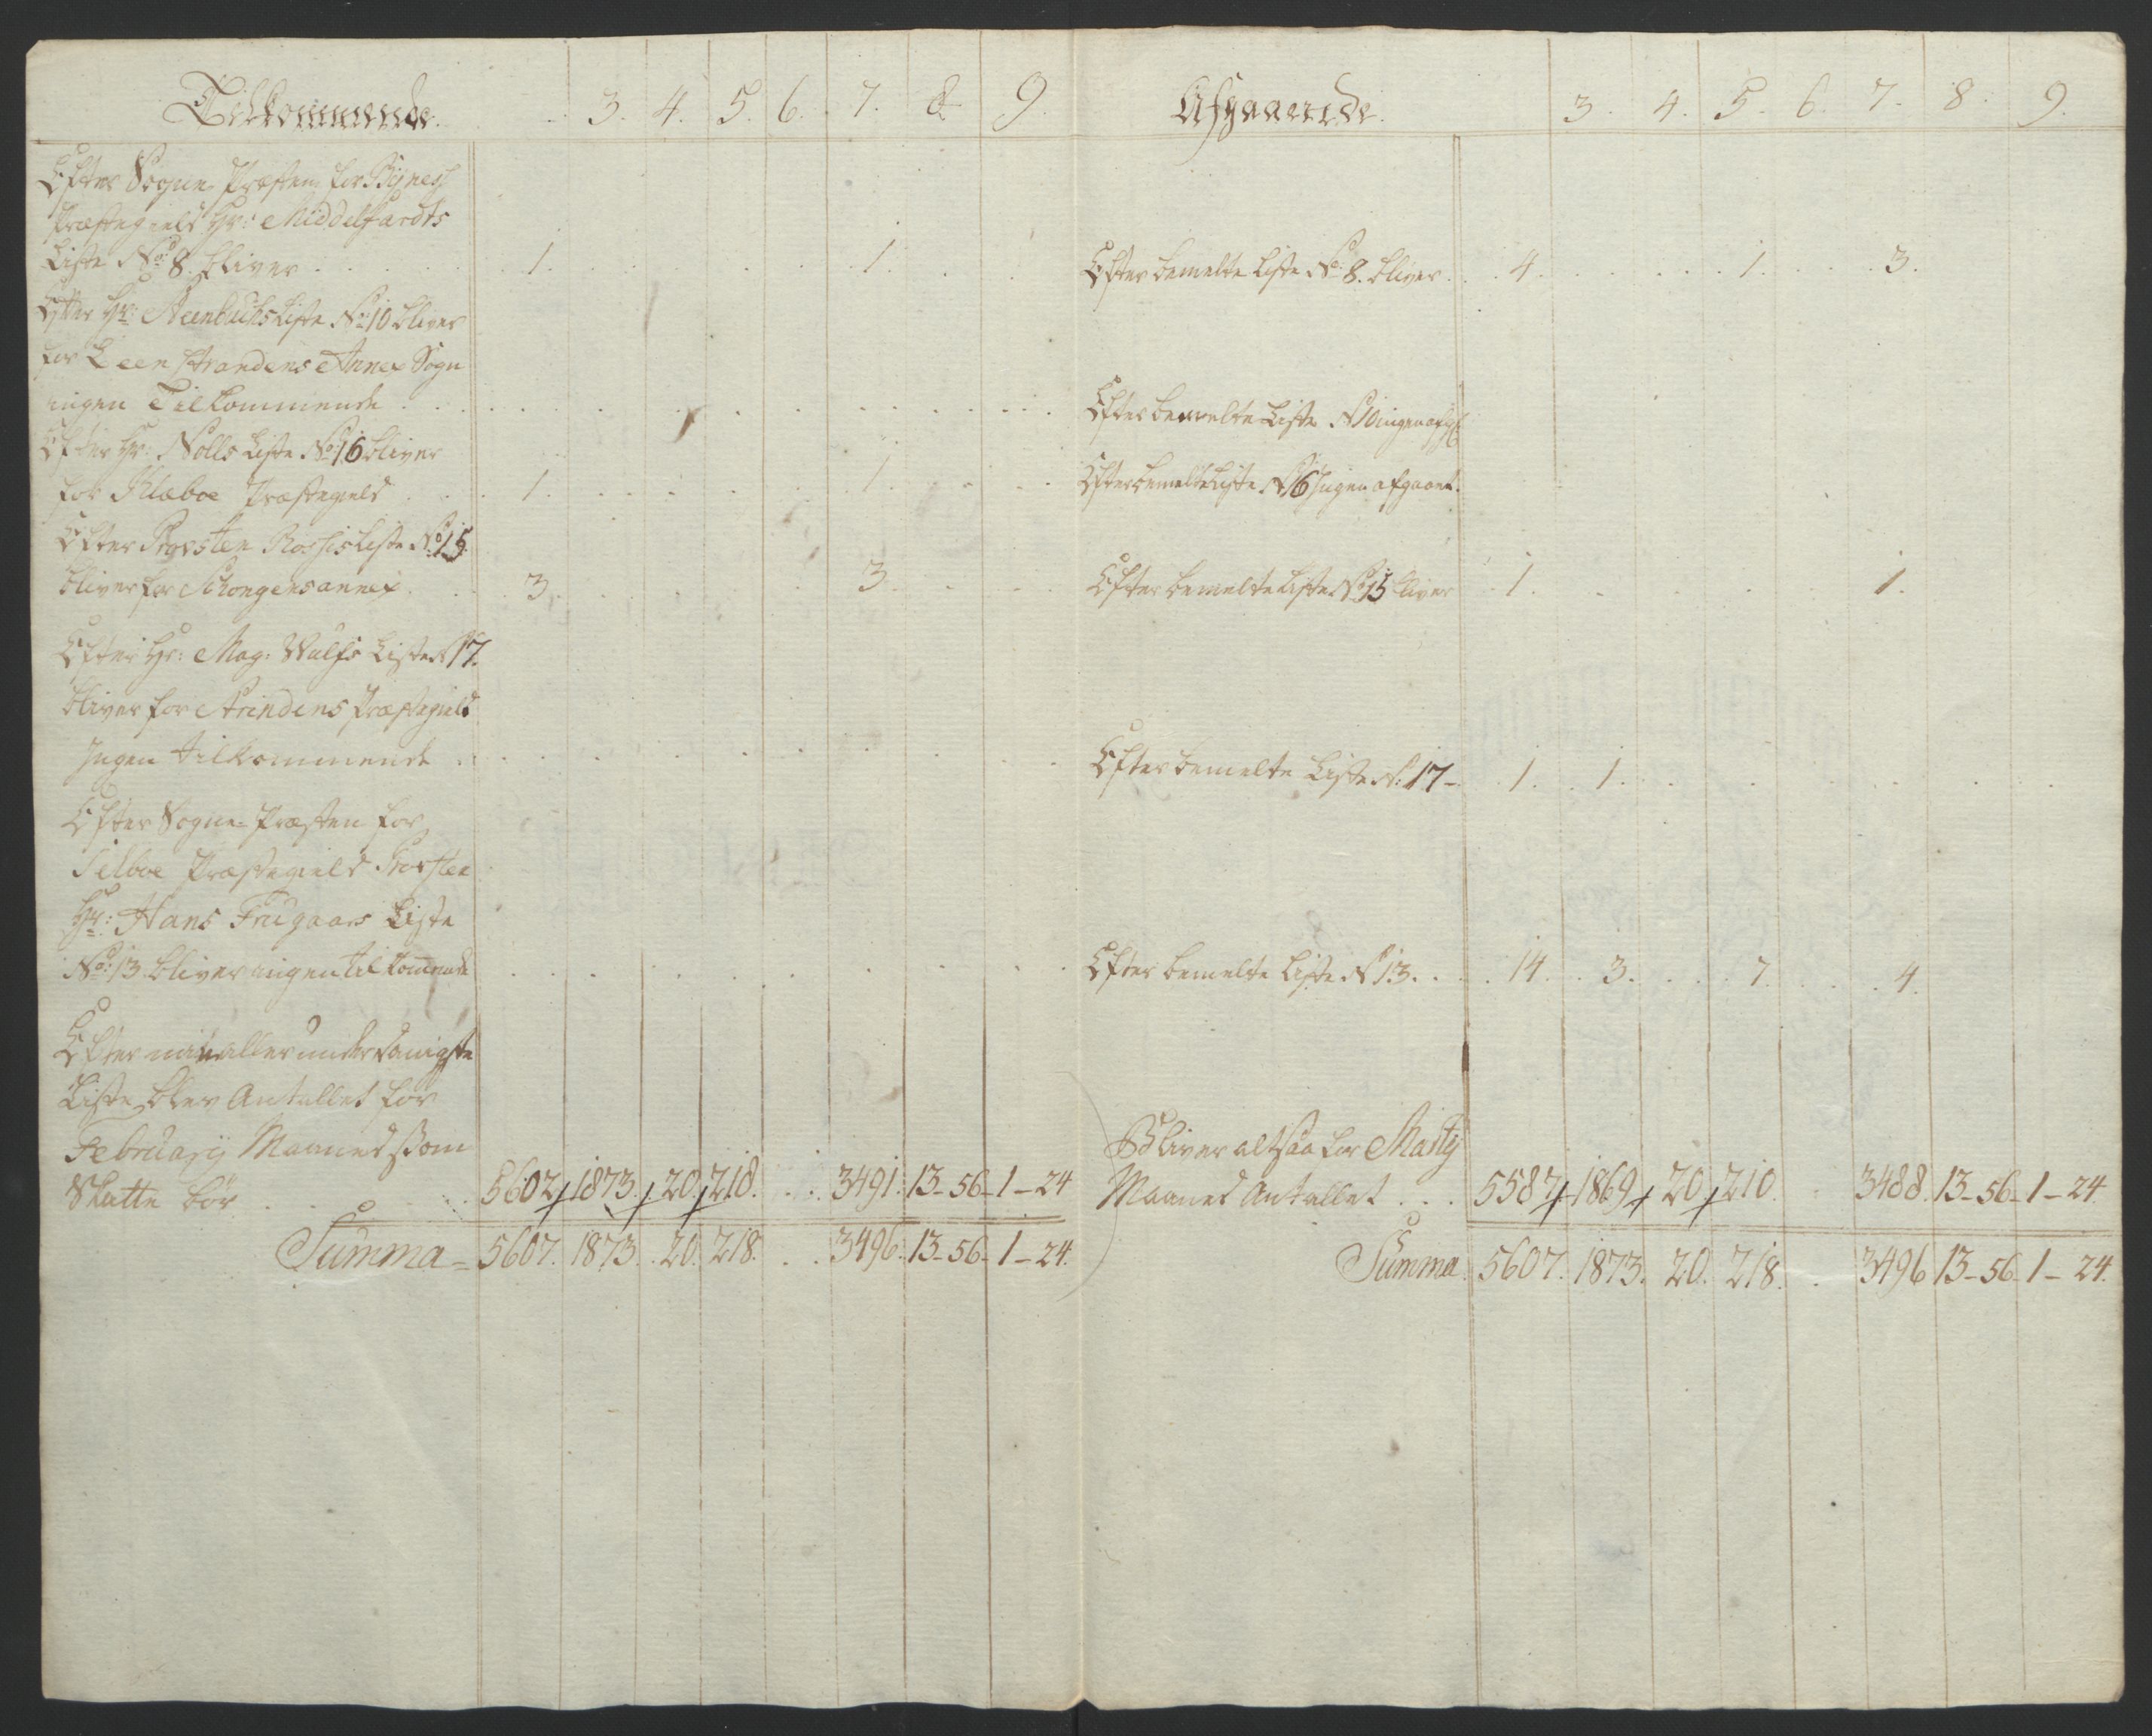 Tilkommende. 3. 4. 5. 6. 7. 8 9.
Efter Sogne-Præsten for Bynes
Præstegield Hr: Middelfardts
Liste No: 8. bliver . . . 1. . . . . . 1. . .
Efter Hr: Steenbuchs Liste No: 10 bliver
for Leenstrandens Annex Sogn
ingen Tilkommende . . .
Efter Hr: Nolls Liste No: 16 bliver
for Klæboe Præstegield . . . 1. . . . . 1. . .
Efter Provsten Liste No: 15.
bliver for annex . . . 3. . . . . 3. . .
Efter Hr: Mag: Wulfs Liste N 17.
bliver for Strindens Præstegield
Ingen tilkommende . . .
Efter Sogne-Præsten for
Selboe Præstegield Provsten
Hr: Hans Liste
No: 13. bliver ingen tilkommende
Efter min allerunderdanigste
Liste blev Antallet for
February Maaned som
Skatte bør . . . 5602 1873. 20. 218. . . 3491. 13-56-1-24
Summa = 5607. 1873. 20. 218. . . 3496. 13-56-1-24.
Afgaaende. 3. 4. 5. 6. 7. 8. 9.
Efter bemelte Liste No: 8. bliver . . 4. . . . . 1. . . . 3.
Efter bemelte Liste N 10 ingen afg
Efter bemelte Liste N 16 Ingen afgaaet.
Efter bemelte Liste No 15 bliver 1. . . . . . 1.
Efter bemelte Liste N: 17 - 1. . 1. . . .
Efter bemelte Liste N 13. . . . 14. . 3. . . . 7. . . . 4.
Bliver altsaa for Marty
Maaned Antallet . . . 5587 1869 20 210. . 3488. 13-56-1-24.
Summa. 5607. 1873. 20. 218. . 3496 13-56-1-24.